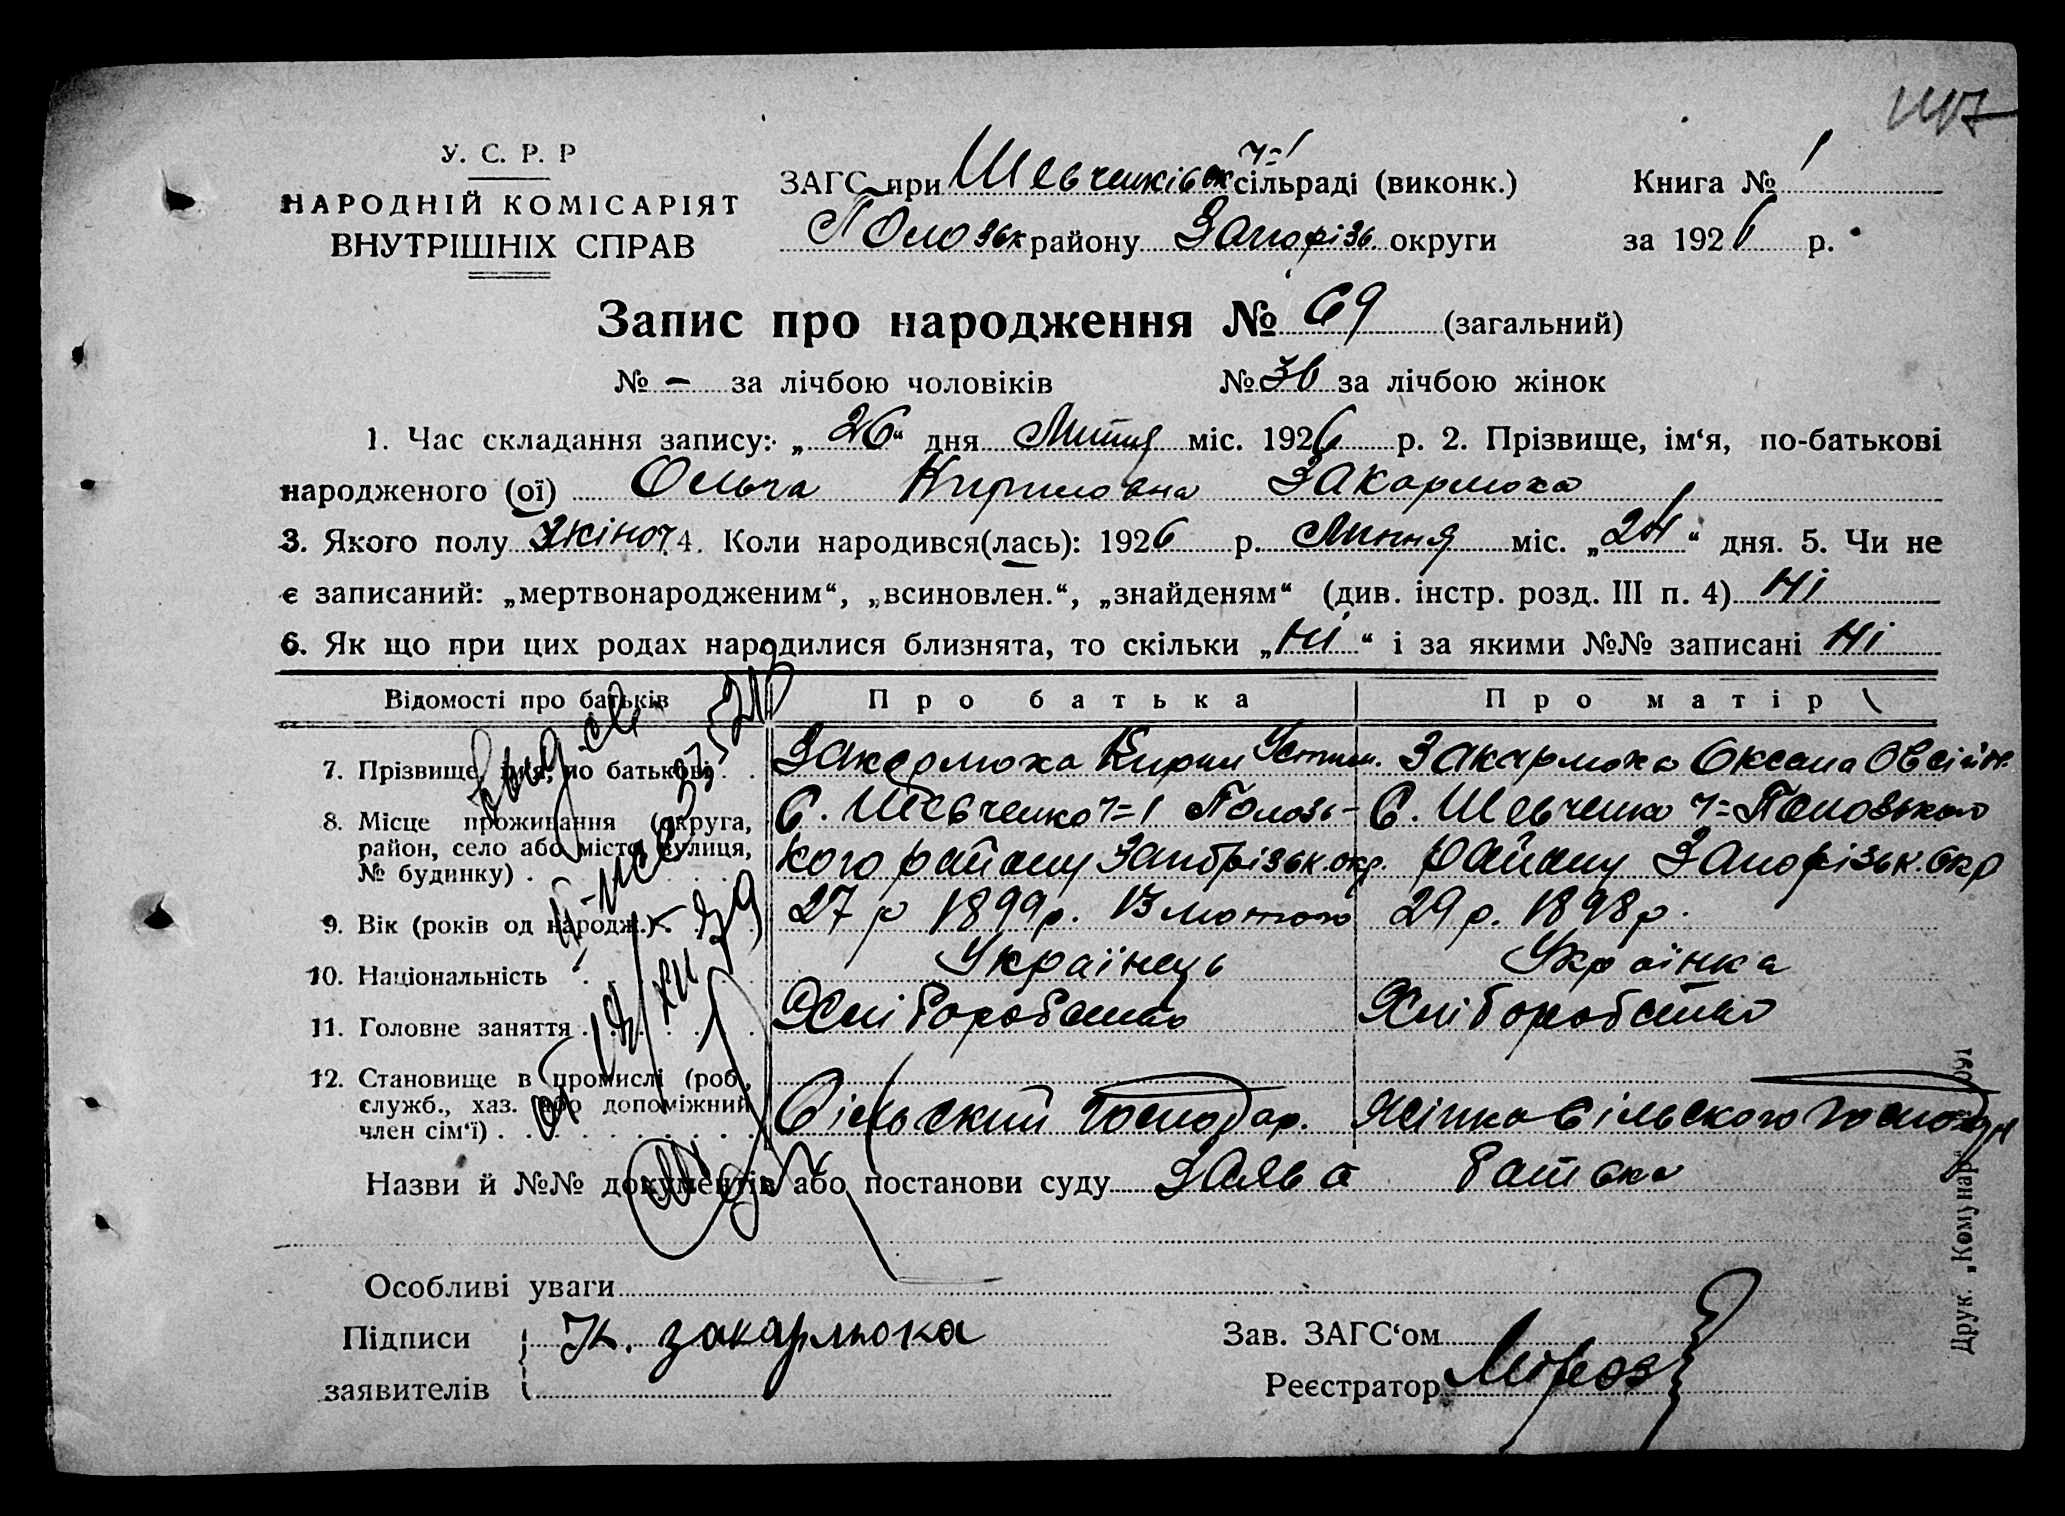 У. С. Р. Р
НАРОДНІЙ КОМІСАРІЯТ
ВНУТРІШНІХ СПРАВ
ЗАГС при Шевченківськ ч=1 сільраді (виконк.) Книга № 1
Полозьк району Запорізь. округи за 1926 р.
Запис про народження № 69 (загальний)
№ – за лічбою чоловіків № 36 за лічбою жінок
1. Час складання запису: „26“ дня Липня міс. 1926 р. 2. Прізвище, ім‘я, по-батькові
народженого (ої) Ольга Кириловна Закарлюка
3. Якого полу жіноч. 4. Коли народився(лась): 1926 р. Липня міс. „24“ дня. 5. Чи не
є записаний: „мертвонародженим“, „всиновлен.“, „знайденям“ (див. інстр. розд. III п. 4) Ні
6. Як що при цих родах народилися близнята, то скільки „Ні“ і за якими №№ записані Ні
Відомості про батьків Про батька Про матір
7. Прізвище, ім‘я, по батькові Закарлюка Кирил Устим. Закарлюка Оксана Овсійн.
8. Місце проживання (округа, район, село або місто, вулиця, № будинку) С. Шевченко ч=1 Полозького району Запорізьк. окр. С. Шевченко ч= Полозького району Запорізьк. окр
9. Вік (років од народж.) 27 р 1899 р. 13 лютого 29 р. 1898 р.
10. Національність Українець Українка
11. Головне заняття Хліборобство Хліборобство
12. Становище в промислі (роб., служб., хаз. або допоміжний член сім‘ї) Сільский Господар. Жінка Сільского Господаря
Назви й №№ документів або постанови суду Заява Батька
Особливі уваги
Підписи К. Закарлюка Зав. ЗАГС‘ом
заявителів Реєстратор Мороз
Друк. „Комунар“